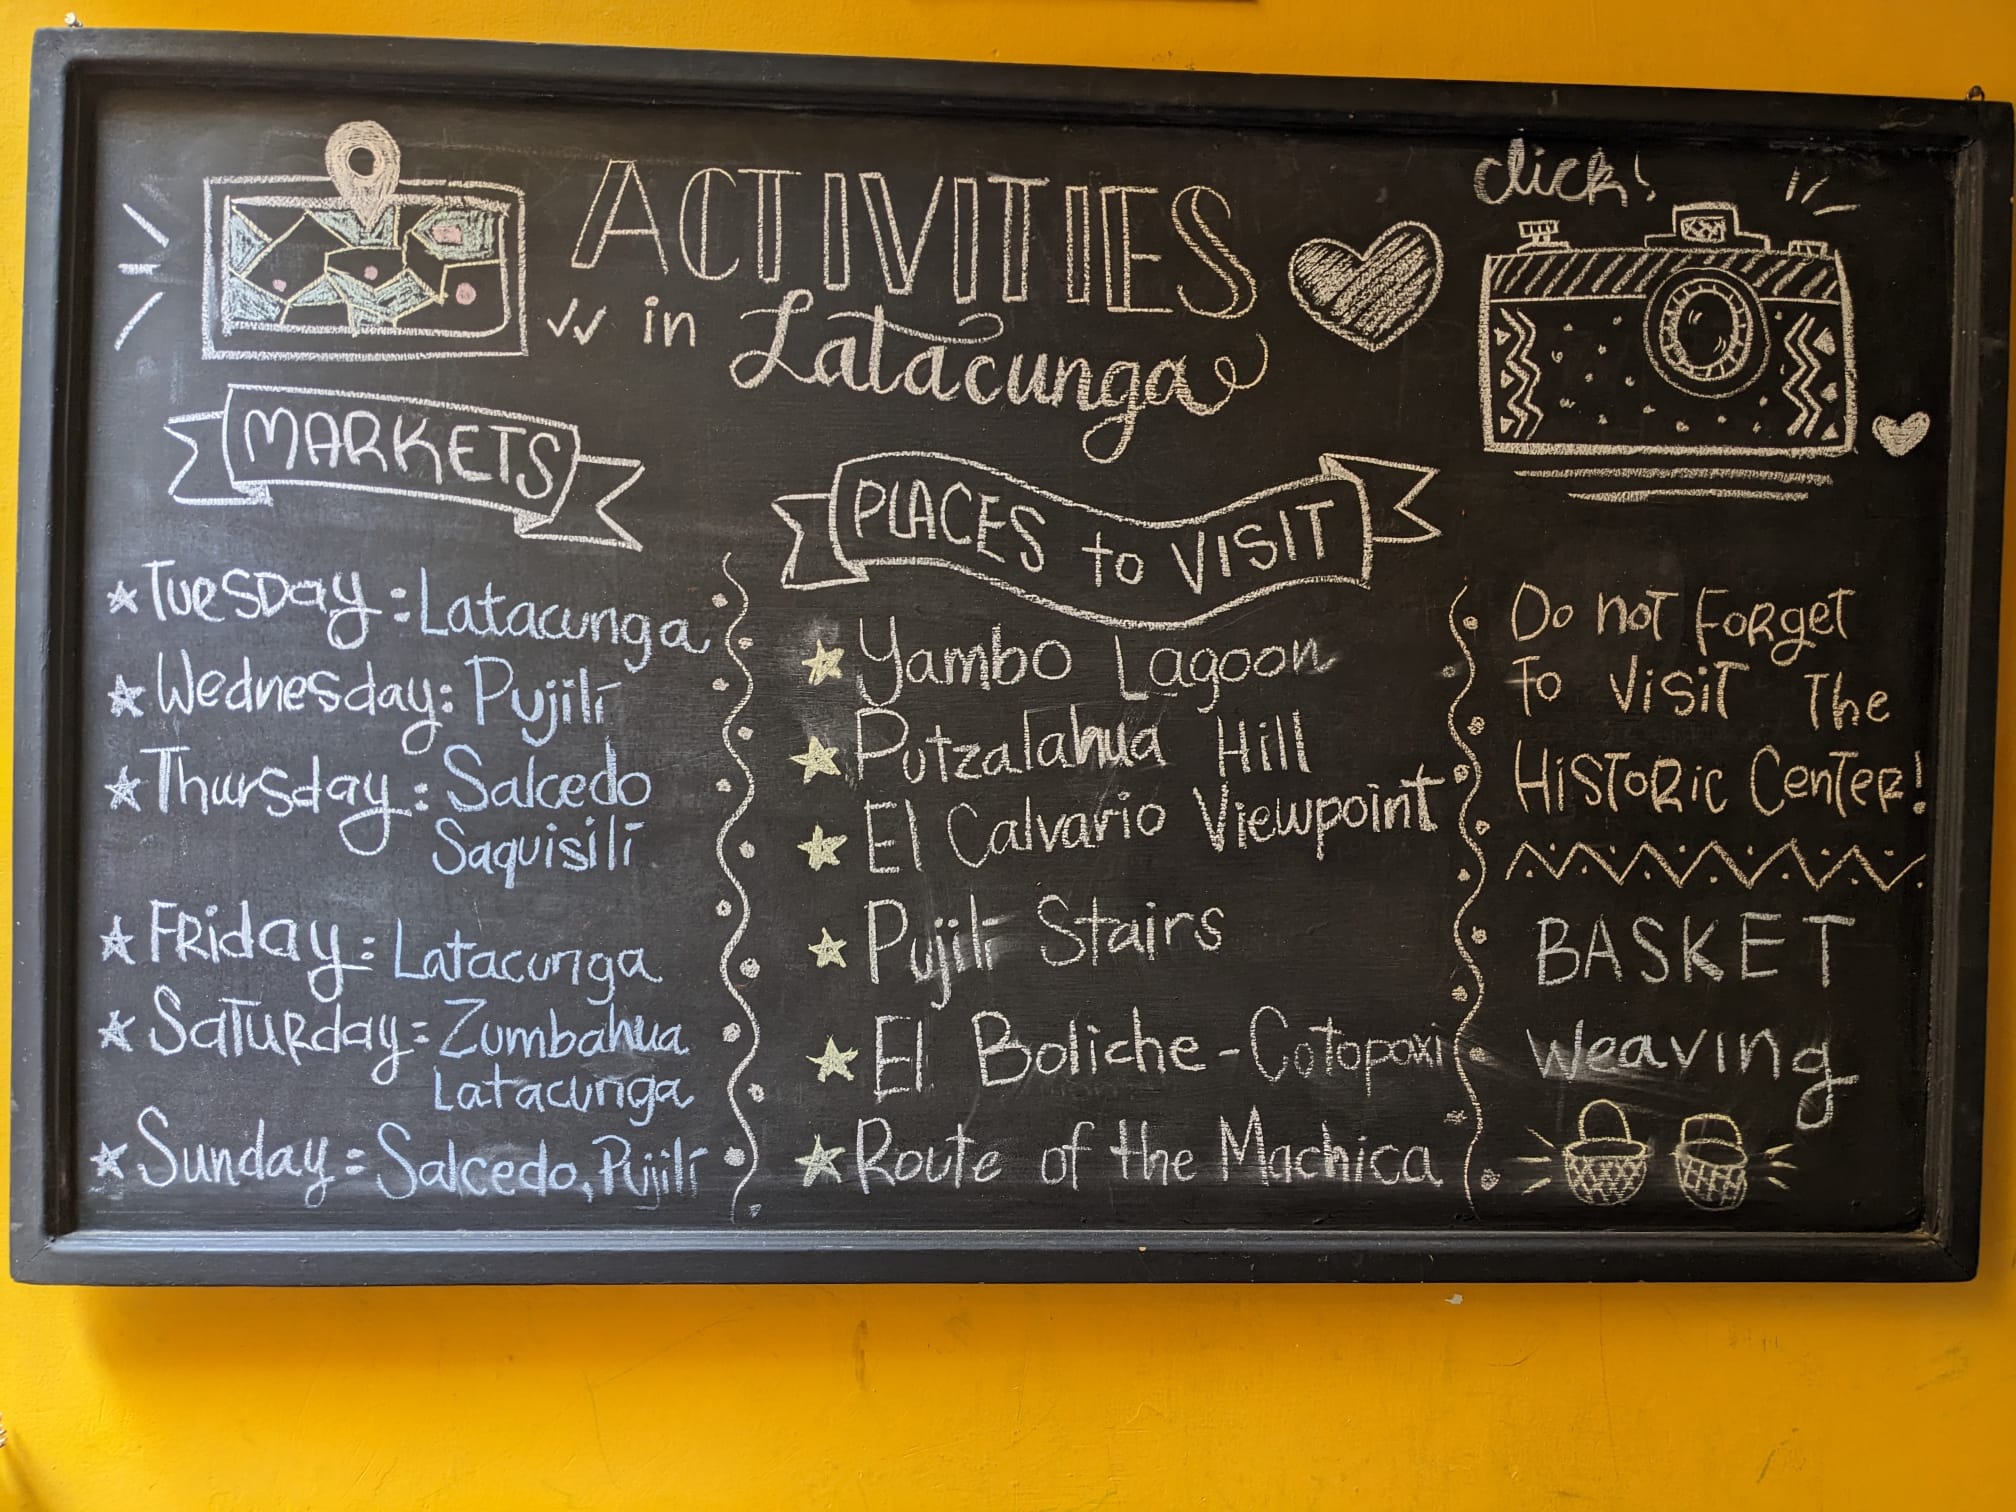 ACTIVITIES
in Latacunga
click!
MARKETS
Tuesday: Latacunga
Wednesday: Pujilí
Thursday: Salcedo
Saquisilí
Friday: Latacunga
Saturday: Zumbahua
Latacunga
Sunday: Salcedo, Pujilí
PLACES to VISIT
Yambo Lagoon
Putzalahua Hill
El Calvario Viewpoint
Pujilí Stairs
El Boliche - Cotopaxi
Route of the Machica
Do not Forget
To Visit The
Historic Center!
BASKET
weaving